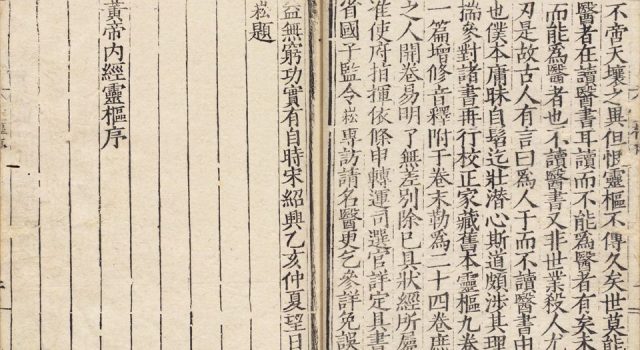 不帝天壤之異但恨靈樞不傳久矣世莫能
醫者在讀醫書耳讀而不能爲醫者有矣未
而能爲醫者也不讀醫書又非世業殺人尤
刃是故古人有言曰爲人子而不讀醫書由
也僕本庸昧自髫迄壯潛心斯道頗涉其理
揣參對諸書再行校正家藏舊本靈樞九卷
一篇增修音釋附于卷末勒爲二十四卷庶
之人開卷易明了無差別除已具狀經所屬
准使府指揮依條申轉運司選官詳定具書
省國子監令崧專訪請名醫更乞參詳免誤
益無窮功實有自時宋紹興乙亥仲夏望日
崧題
黃帝內經靈樞序